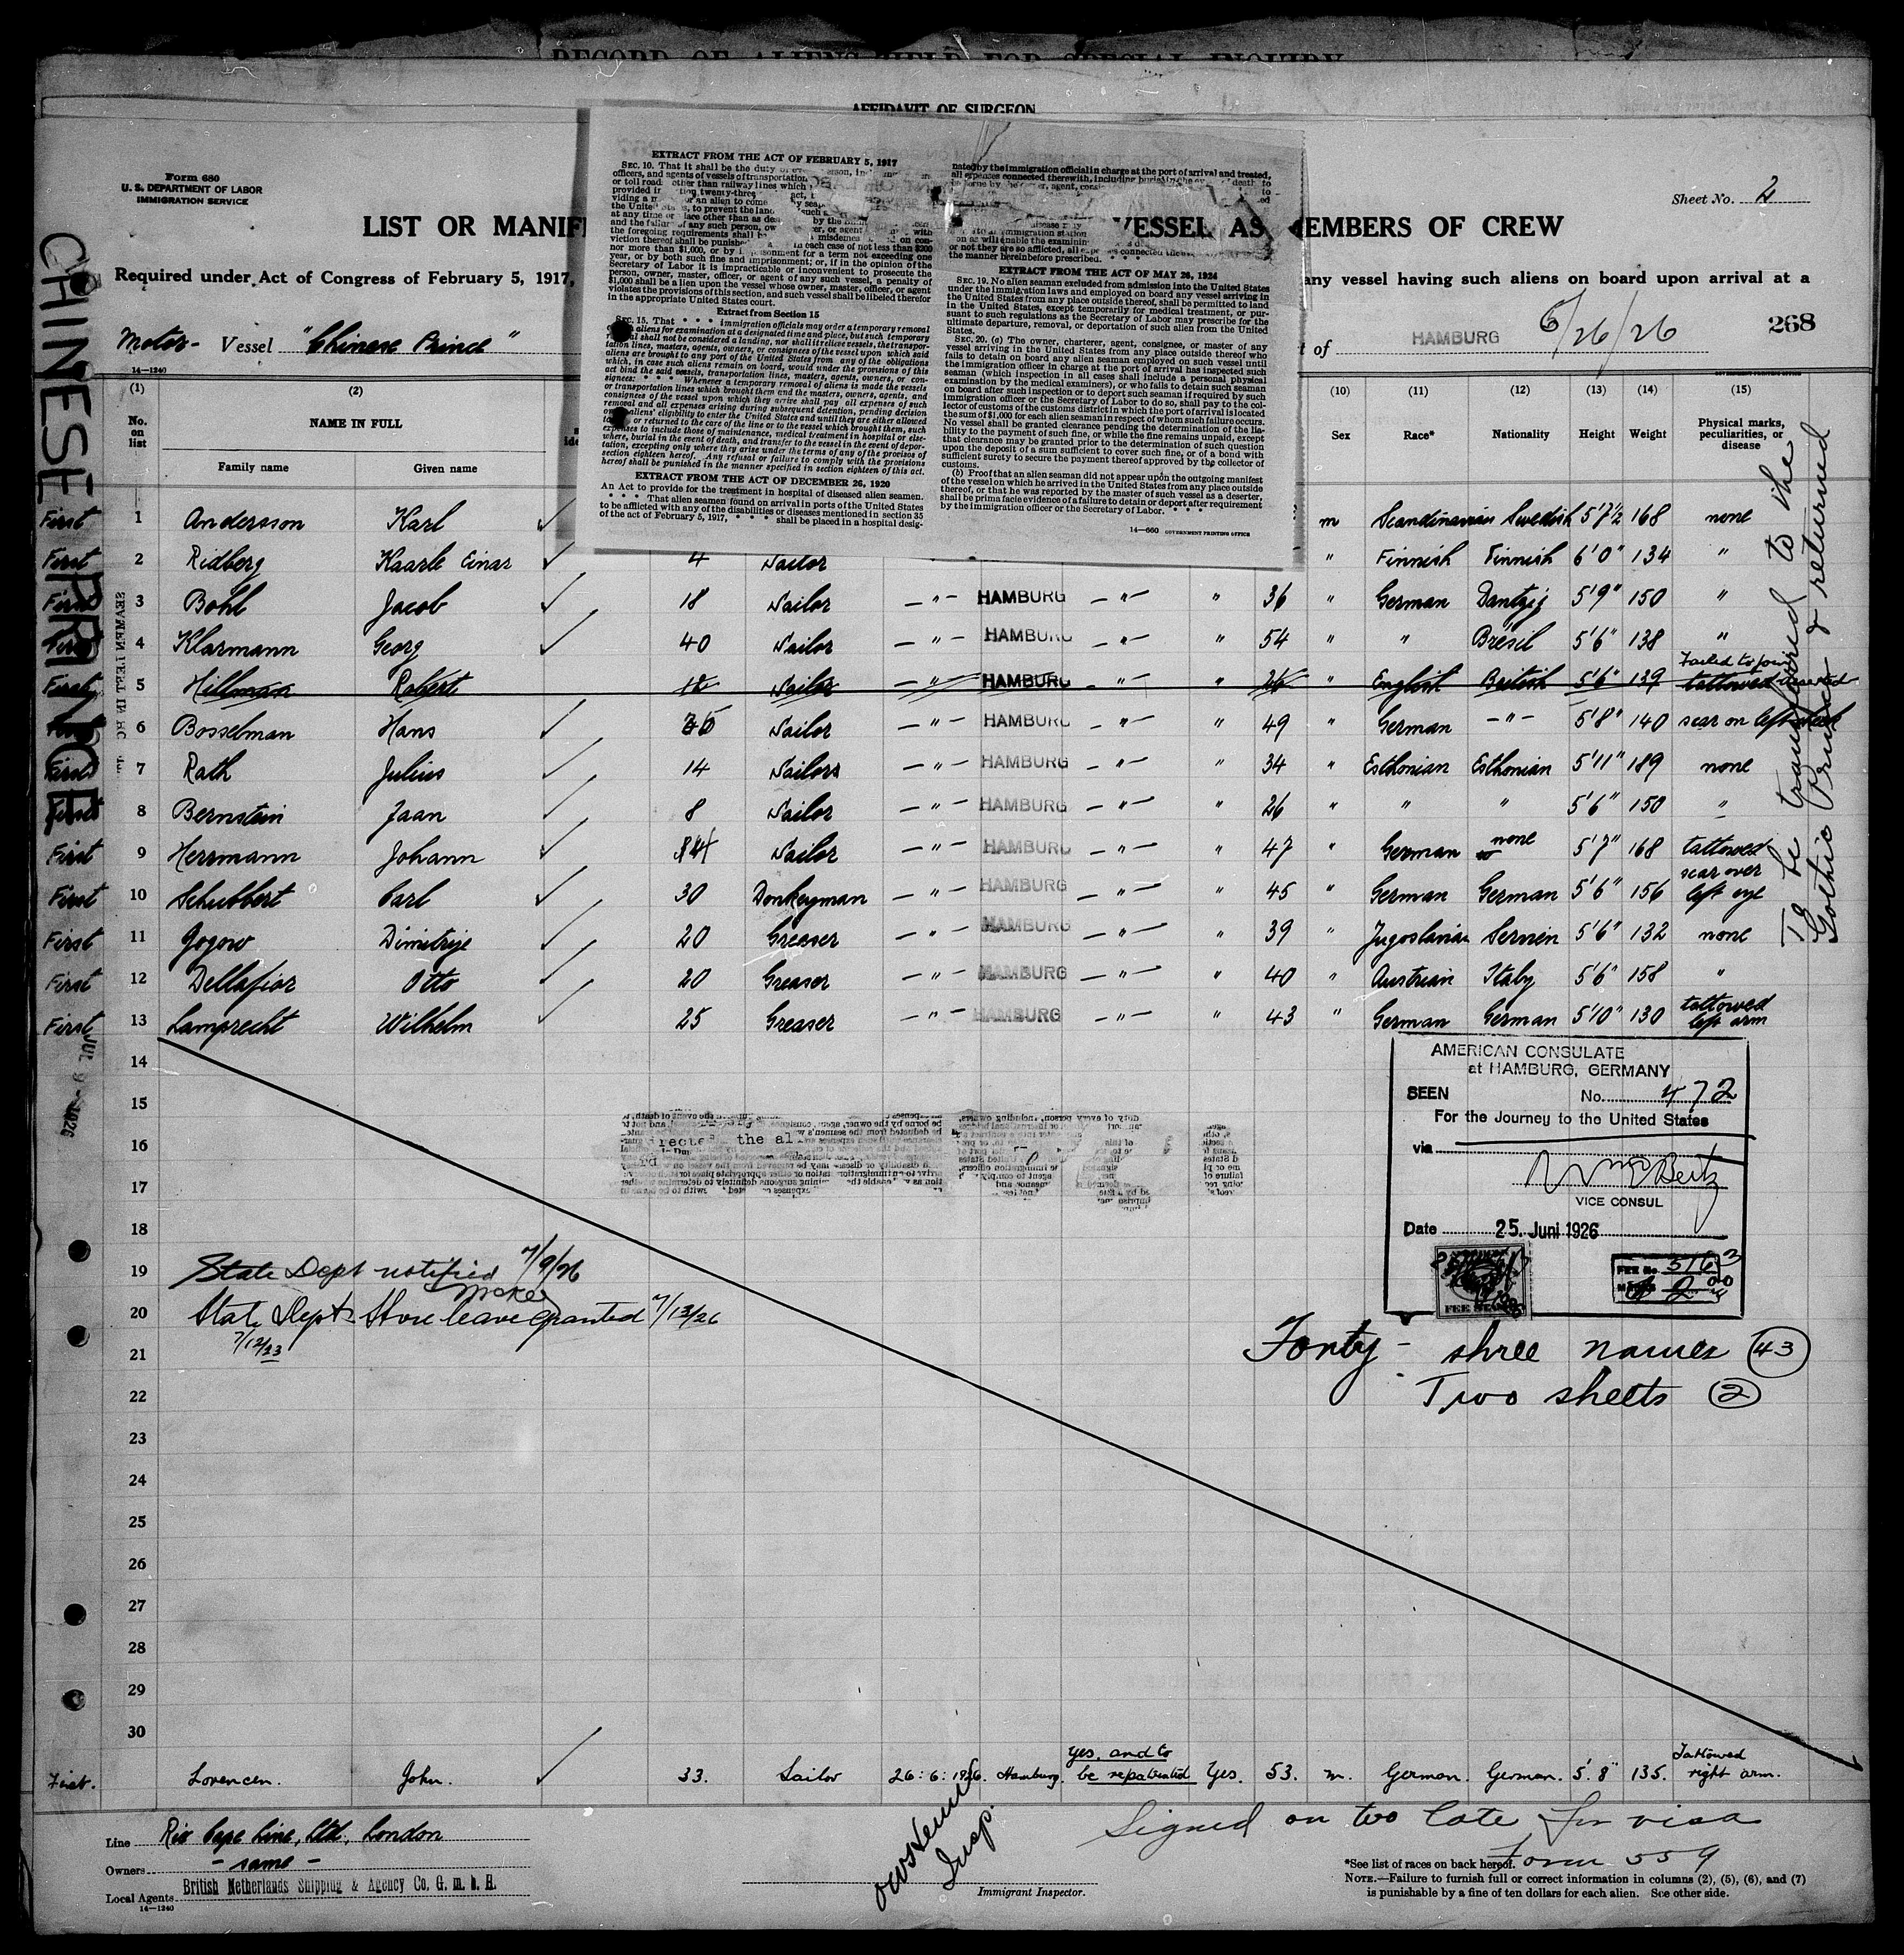 RECORD OF ALIENS HELD FOR SPECIAL INQUIRY
AFFIDAVIT OF SURGEON
Form 680
U. S. DEPARTMENT OF LABOR
IMMIGRATION SERVICE
Sheet No. 2
LIST OR MANIF VESSEL AS MEMBERS OF CREW
Required under Act of Congress of February 5, 1917, any vessel having such aliens on board upon arrival at a
Motor- Vessel "Chinese Prince" of HAMBURG 6/26/26 268
14—1240
CHINESE PRINCE
EXTRACT FROM THE ACT OF FEBRUARY 5, 1917
SEC. 10. That it shall be the duty
officers, and agents of vessels of transportation
or toll road other than railway lines which
at any time or place other than as
the foregoing requirements shall
nor more than $1,000, or by imprisonment for a term not exceeding one
year, or by both such fine and imprisonment; or, if in the opinion of the
Secretary of Labor it is impracticable or inconvenient to prosecute the
person, owner, master, officer, or agent of any such vessel, a penalty of
$1,000 shall be a lien upon the vessel whose owner, master, officer, or agent
violates the provisions of this section, and such vessel shall be libeled therefor
in the appropriate United States court.
Extract from Section 15
SEC. 15. That * * * immigration officials may order a temporary removal
aliens for examination at a designated time and place, but such temporary
removal shall not be considered a landing, nor shall it relieve vessels, the transportation lines, masters, agents, owners, or consignees of the vessel upon which said
aliens are brought to any port of the United States from any of the obligations
which, in case such aliens remain on board, would under the provisions of this
act bind the said vessels, transportation lines, masters, agents, owners, or consignees: * * * Whenever a temporary removal of aliens is made the vessels
or transportation lines which brought them and the masters, owners, agents, and
consignees of the vessel upon which they arrive shall pay all expenses of such
removal and all expenses arising during subsequent detention, pending decision
or returned to the care of the line or to the vessel which brought them, such
expenses to include those of maintenance, medical treatment in hospital or elsewhere, burial in the event of death, and transfer to the vessel in the event of deportation, excepting only where they arise under the terms of any of the provisos of
section eighteen hereof. Any refusal or failure to comply with the provisions
hereof shall be punished in the manner specified in section eighteen of this act.
EXTRACT FROM THE ACT OF DECEMBER 26, 1920
An Act to provide for the treatment in hospital of diseased alien seamen.
* * * That alien seamen found on arrival in ports of the United States
to be afflicted with any of the disabilities or diseases mentioned in section 35
of the act of February 5, 1917, * * * shall be placed in a hospital desig-
nated by the immigration official in charge at the port of arrival and treated,
all expenses connected therewith, including burial in the event of death, to
or not they are so afflicted, all expenses connected
the manner hereinbefore prescribed. * * *
EXTRACT FROM THE ACT OF MAY 26, 1924
SEC. 19. No alien seaman excluded from admission into the United States
under the immigration laws and employed on board any vessel arriving in
the United States from any place outside thereof, shall be permitted to land
in the United States, except temporarily for medical treatment, or pursuant to such regulations as the Secretary of Labor may prescribe for the
ultimate departure, removal, or deportation of such alien from the United
States.
SEC. 20. (a) The owner, charterer, agent, consignee, or master of any
vessel arriving in the United States from any place outside thereof who
fails to detain on board any alien seaman employed on such vessel until
the immigration officer in charge at the port of arrival has inspected such
seaman (which inspection in all cases shall include a personal physical
examination by the medical examiners), or who fails to detain such seaman
on board after such inspection or to deport such seaman if required by such
immigration officer or the Secretary of Labor to do so, shall pay to the collector of customs of the customs district in which the port of arrival is located
the sum of $1,000 for each alien seaman in respect of whom such failure occurs.
No vessel shall be granted clearance pending the determination of the liability to the payment of such fine, or while the fine remains unpaid, except
that clearance may be granted prior to the determination of such question
upon the deposit of a sum sufficient to cover such fine, or of a bond with
sufficient surety to secure the payment thereof approved by the collector of
customs.
(b) Proof that an alien seaman did not appear upon the outgoing manifest
of the vessel on which he arrived in the United States from any place outside
thereof, or that he was reported by the master of such vessel as a deserter,
shall be prima facie evidence of a failure to detain or deport after requirement
by the immigration officer or the Secretary of Labor. * * *
14—660 GOVERNMENT PRINTING OFFICE
(1) (2) (10) (11) (12) (13) (14) (15)
No. on list NAME IN FULL Sex Race* Nationality Height Weight Physical marks, peculiarities, or disease
Family name Given name
First 1 Andersson Karl m Scandinavian Swedish 5'7½ 168 none
First 2 Ridberg Kaarle Einar 4 Sailor " Finnish Finnish 6'0" 134 "
First 3 Bohl Jacob 18 Sailor — " — HAMBURG — " — " 36 " German Dantzig 5'9" 150 "
First 4 Klarmann Georg 40 Sailor — " — HAMBURG — " — " 54 " " Bresil 5'6" 138 "
First 5 Hillman Robert Sailor — " — HAMBURG — " — " 26 " English British 5'6" 139 tattowed
Failed to join
First 6 Bosselman Hans Sailor — " — HAMBURG — " — " 49 " German — " — 5'8" 140 scar on left cheek
First 7 Rath Julius 14 Sailors — " — HAMBURG — " — " 34 " Esthonian Esthonian 5'11" 189 none
First 8 Bernstein Jaan 8 Sailor — " — HAMBURG — " — " 26 " " " 5'6" 150 "
First 9 Herrmann Johann Sailor — " — HAMBURG — " — " 47 " German none 5'7" 168 tattowed
First 10 Schubbert Carl 30 Donkeyman — " — HAMBURG — " 45 " German German 5'6" 156 scar over left eye
First 11 Gogow Dimitrije 20 Greaser — " — HAMBURG — " — " 39 " Jugoslavian Servien 5'6" 132 none
First 12 Dellafior Otto 20 Greaser — " — HAMBURG — " — " 40 " Austrian Italy 5'6" 158 "
First 13 Lamprecht Wilhelm 25 Greaser — " — HAMBURG — " — " 43 " German German 5'10" 130 tattowed left arm
To be transferred to the
Gothic Prince & returned
JUL 9 1926
14
15
16
17
18
19
20
21
22
23
24
25
26
27
28
29
30
AMERICAN CONSULATE
at HAMBURG, GERMANY
SEEN No. 472
For the Journey to the United States
via
VICE CONSUL
Date 25. Juni 1926
FEE No. 5163
FEE STAMP
State Dept notified 7/9/26
State Dept Shore leave granted 7/13/26
Forty-three names 43
Two sheets 2
First. Lorencen. John. 33. Sailor 26:6:1926. Hamburg. Yes, and to be repatriated Yes. 53. m. German. German. 5'.8" 135. Tattowed right arm.
Signed on too late for visa
Form 559
Line Rio Cape Line, Ltd, London
Owners - same -
Local Agents British Netherlands Shipping & Agency Co. G. m. b. H.
14—1240
Insp.
Immigrant Inspector.
*See list of races on back hereof.
NOTE.—Failure to furnish full or correct information in columns (2), (5), (6), and (7)
is punishable by a fine of ten dollars for each alien. See other side.